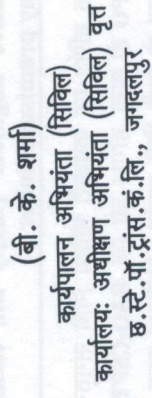 (बी. के. शर्मा)
कार्यपालन अभियंता (सिविल)
कार्यालयः अधीक्षण अभियंता (सिविल) वृत्त
छ.स्टे.पॉ.ट्रांस.कं.लि., जगदलपुर